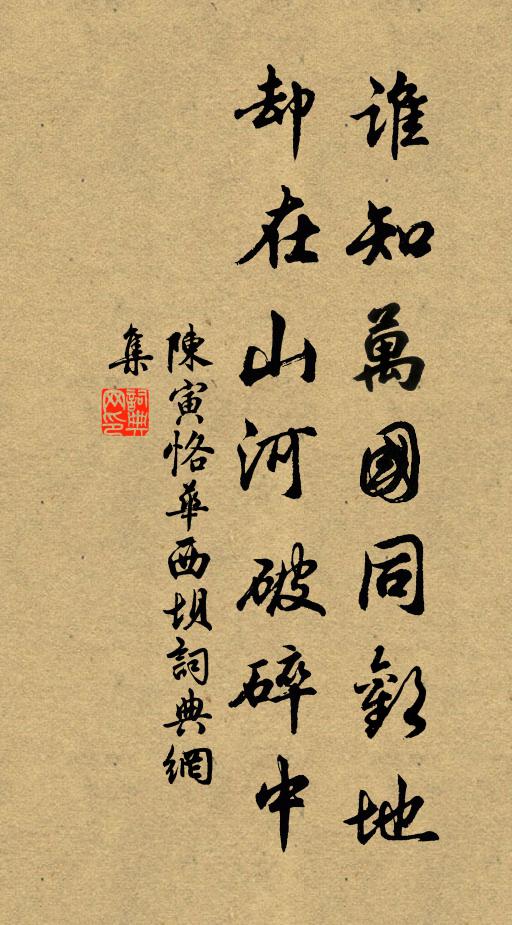 誰知萬國同歡地
却在山河破碎中
陳寅恪華西坝詞典網
集
詞典
网印